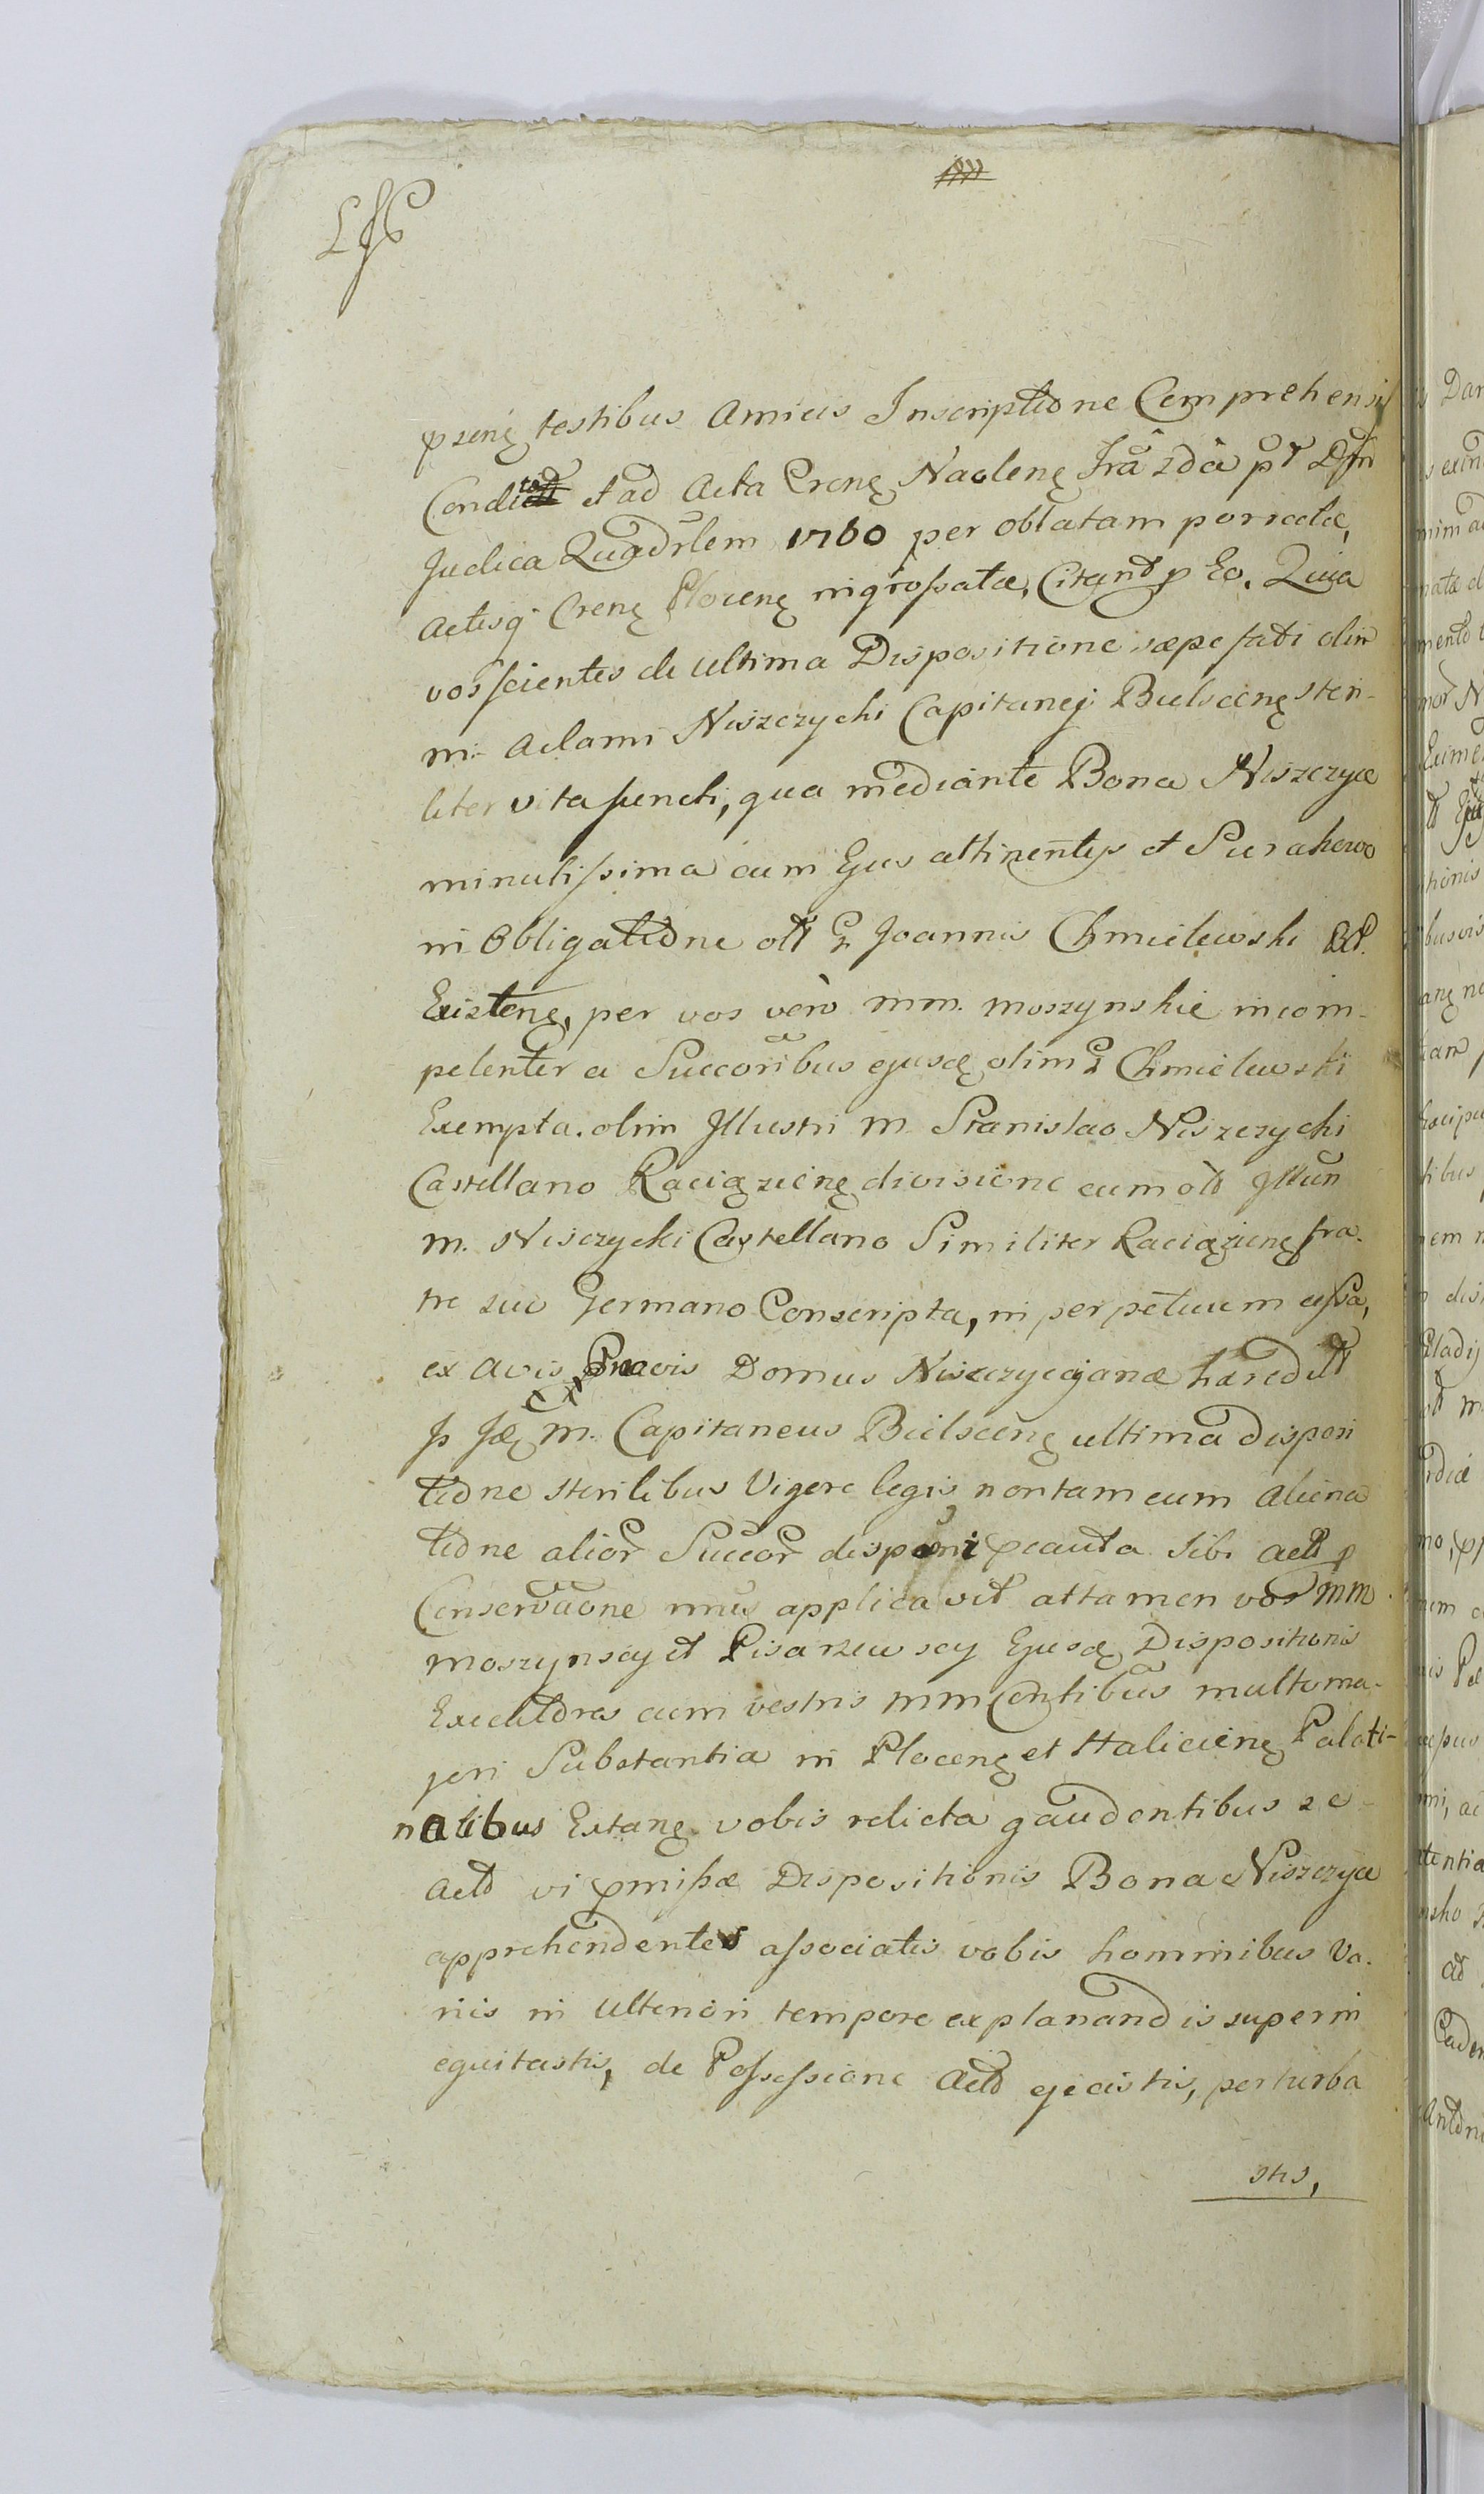 prseng testibus Amicis Inscriptione Comprehensis
Condita et ad Acta Creng Naoleng Fra 2da pt Dfn
Judica Quadrlem 1760 per oblatam porrecta,
Actisq Creng Ploceng ingrossata, Citant p Eo. Quia
vos scientes de ultima Dispositione sæpe fati olim
m. Adami Niszczycki Capitanej Bielsceng steri-
liter vita functi, qua mediante Bona Niszczyce
minutissima cum Ejus attinentijs et Sierakowo
in Obligatione olt G. Joannis Chmielewski
Existeng, per vos vero mm. Moszynskie incom-
petenter a Succoribus ejusdę olim G Chmielewski
Exempta. olim Illustri m. Stanislao Niszczycki
Castellano Raciązieng divisione cum olt Illun
m. Nisczycki Castellano Similiter Raciązieng fra-
tre suo Germano Conscripta, in perpetuum cessa,
ex Avis Proavis Domus Niszczycejanæ hæredit
m. Capitaneus Bielsceng ultima disposi
tione sterilibus Vigore legis non tam cum Aliena
tione alior Succor disponi præcauta sibi acto p
Conservaone unus applicavit attamen vos mm
Moszynscy et Pisarzewscy Ejusdę Dispositionis
Executores cum vestris mm Centibus multo ma-
jori Substantia in Ploceng et Haliceieng Palati-
nalibus Extang. vobis relicta gaudentibus se
Acto vi præmissæ Dispositionis Bona Niszczyce
apprehendentes associatis vobis hominibus Va-
riis in ulteriori tempore explanandis superin
equitastis, de Possessione Acto ejecistis, perturba
stis,